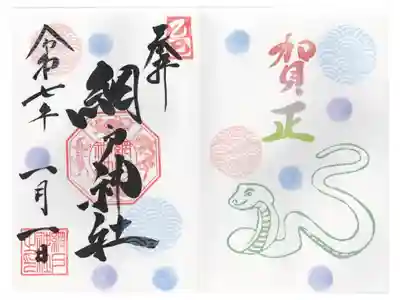 賀正
乙巳
網戸神社
令和七年
一月一日